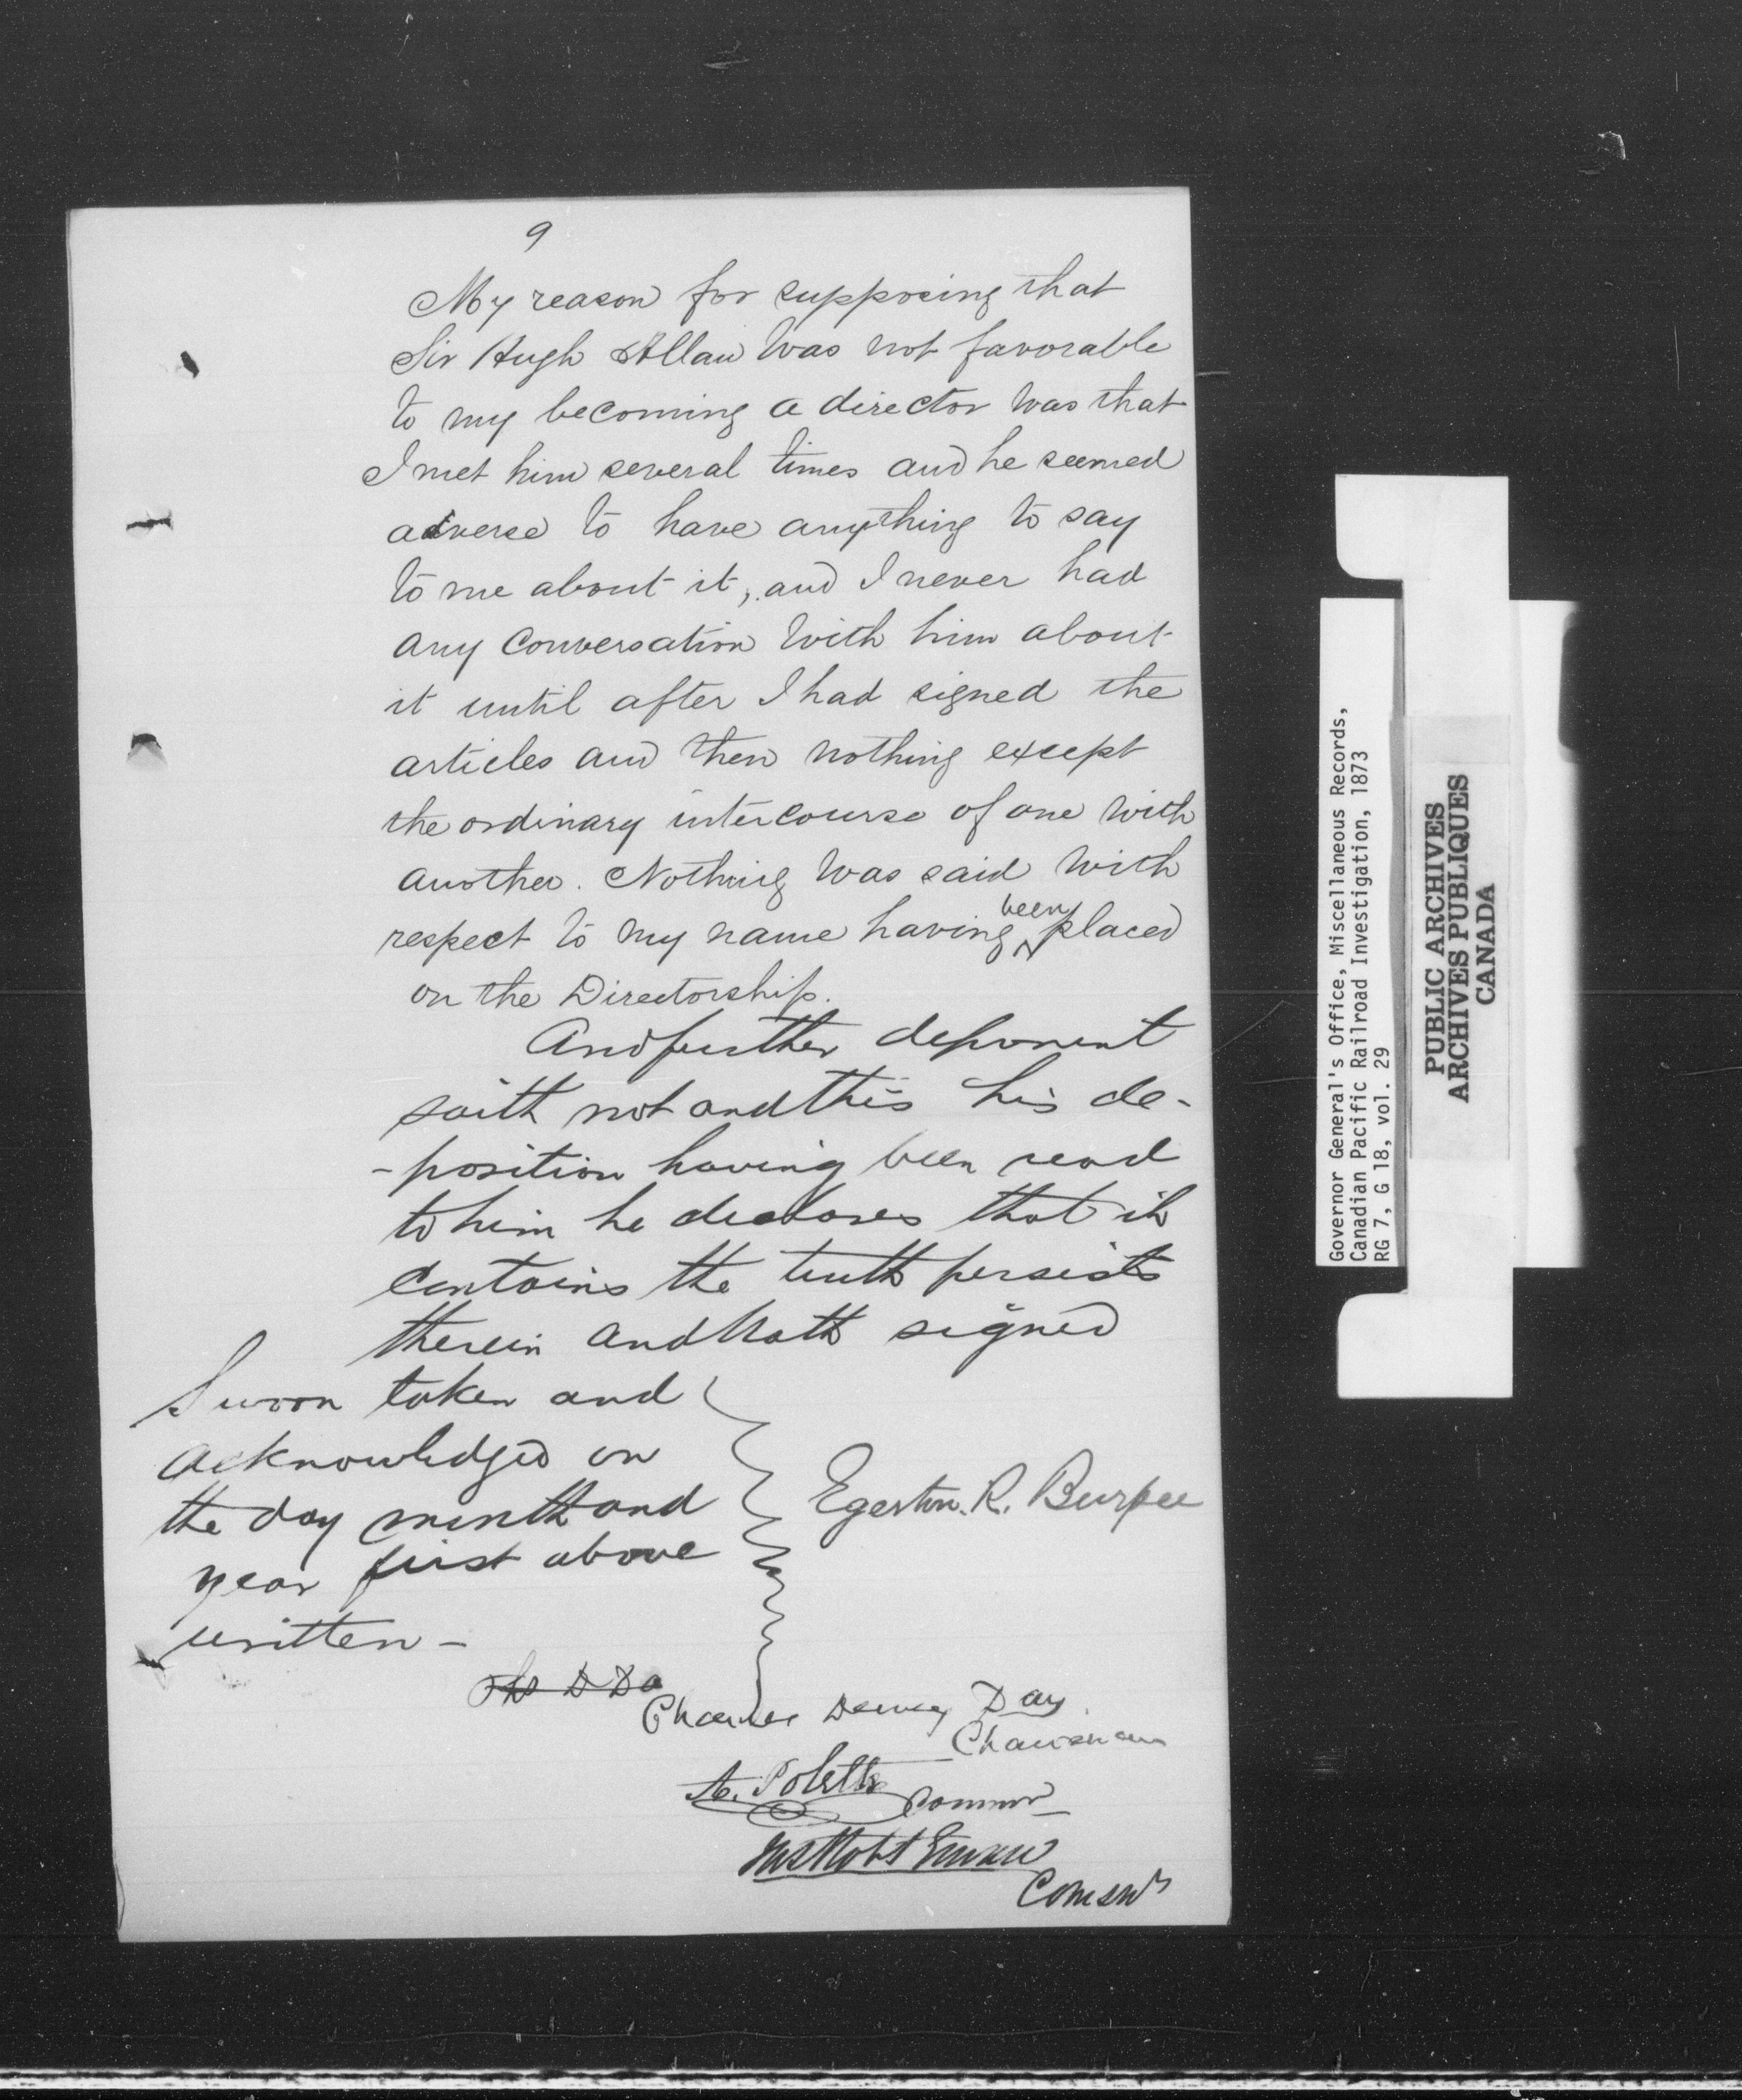 9
My reason for supposing that
Sir Hugh Allan was not favorable
to my becoming a director was that
I met him several times and he seemed
adverse to have anything to say
to me about it, and I never had
any conversation with him about
it until after I had signed the
articles and then nothing except
the ordinary intercourse of one with
another. Nothing was said with
respect to my name having been placed
on the Directorship.
And further deponent
saith not and this his de-
-position having been read
to him he declares that it
contains the truth persists
therein and hath signed
Sworn taken and
acknowledged on
the day month and
year first above
written -
Egerton. R. Burpee
Charles Dewey Day
Chairman
A. Polette
Commr
Comsnr
Governor General's Office, Miscellaneous Records,
Canadian Pacific Railroad Investigation, 1873
RG 7, G 18, vol. 29
PUBLIC ARCHIVES
ARCHIVES PUBLIQUES
CANADA